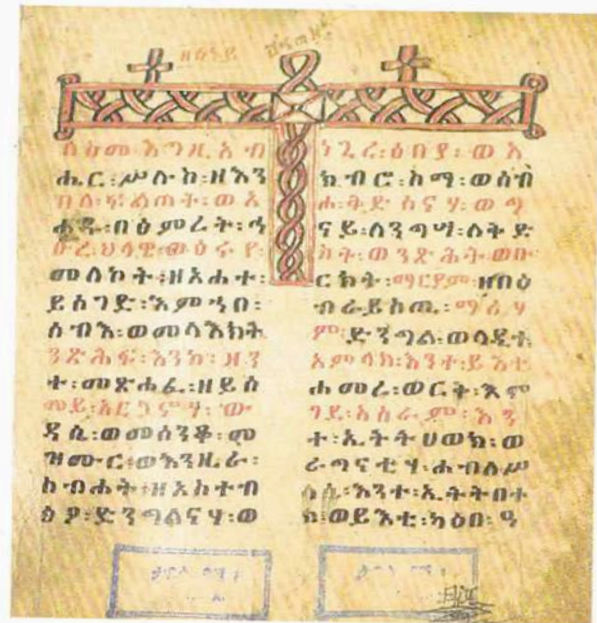 ዘሰኑይ
በስመ፡እግዚአብ
ሔር፡ሥሉስ፡ዘእን
በለ፡ፍልጠት፡ወአ
ሐዱ፡በዕምረት፡ኅ
ቡረ፡ህላዌ፡ወዕሩየ፡
መለኮት፡ዘአሐተ፡
ይሰገድ፡እምኀበ፡
ሰብእ፡ወመላእክት
ንጽሕፍ፡እንከ፡ዘን
ተ፡መጽሐፈ፡ዘይሰ
መይ፡አርጋኖሃ፡ው
ዳሴ፡ወመሰንቆ፡መ
ዝሙር፡ወእንዚራ፡
ስብሐት፡ዘአስተብ
ፅዖ፡ድንግልናሃ፡ወ
ነጊረ፡ዕበያ፡ወአ
ክብሮ፡ስማ፡ወሰብ
ሖ፡ቅድስናሃ፡ወግ
ናይ፡ለንግሣ፡ለቅድ
ስት፡ወንጽሕት፡ወቡ
ርክት፡ማርያም፡ዘበዕ
ብራይስጢ፡ማሪሃ
ም፡ድንግል፡ወላዲተ
አምላክ፡እንተ፡ይእቲ
ሐመረ፡ወርቅ፡እም
ገደ፡አስራም፡እን
ተ፡ኢትትሀወክ፡ወ
ራግናቲሃ፡ሐብለ፡ሥ
ሉስ፡እንተ፡ኢትትበተ
ክ፡ወይእቲ፡ካዕበ፡ዓ